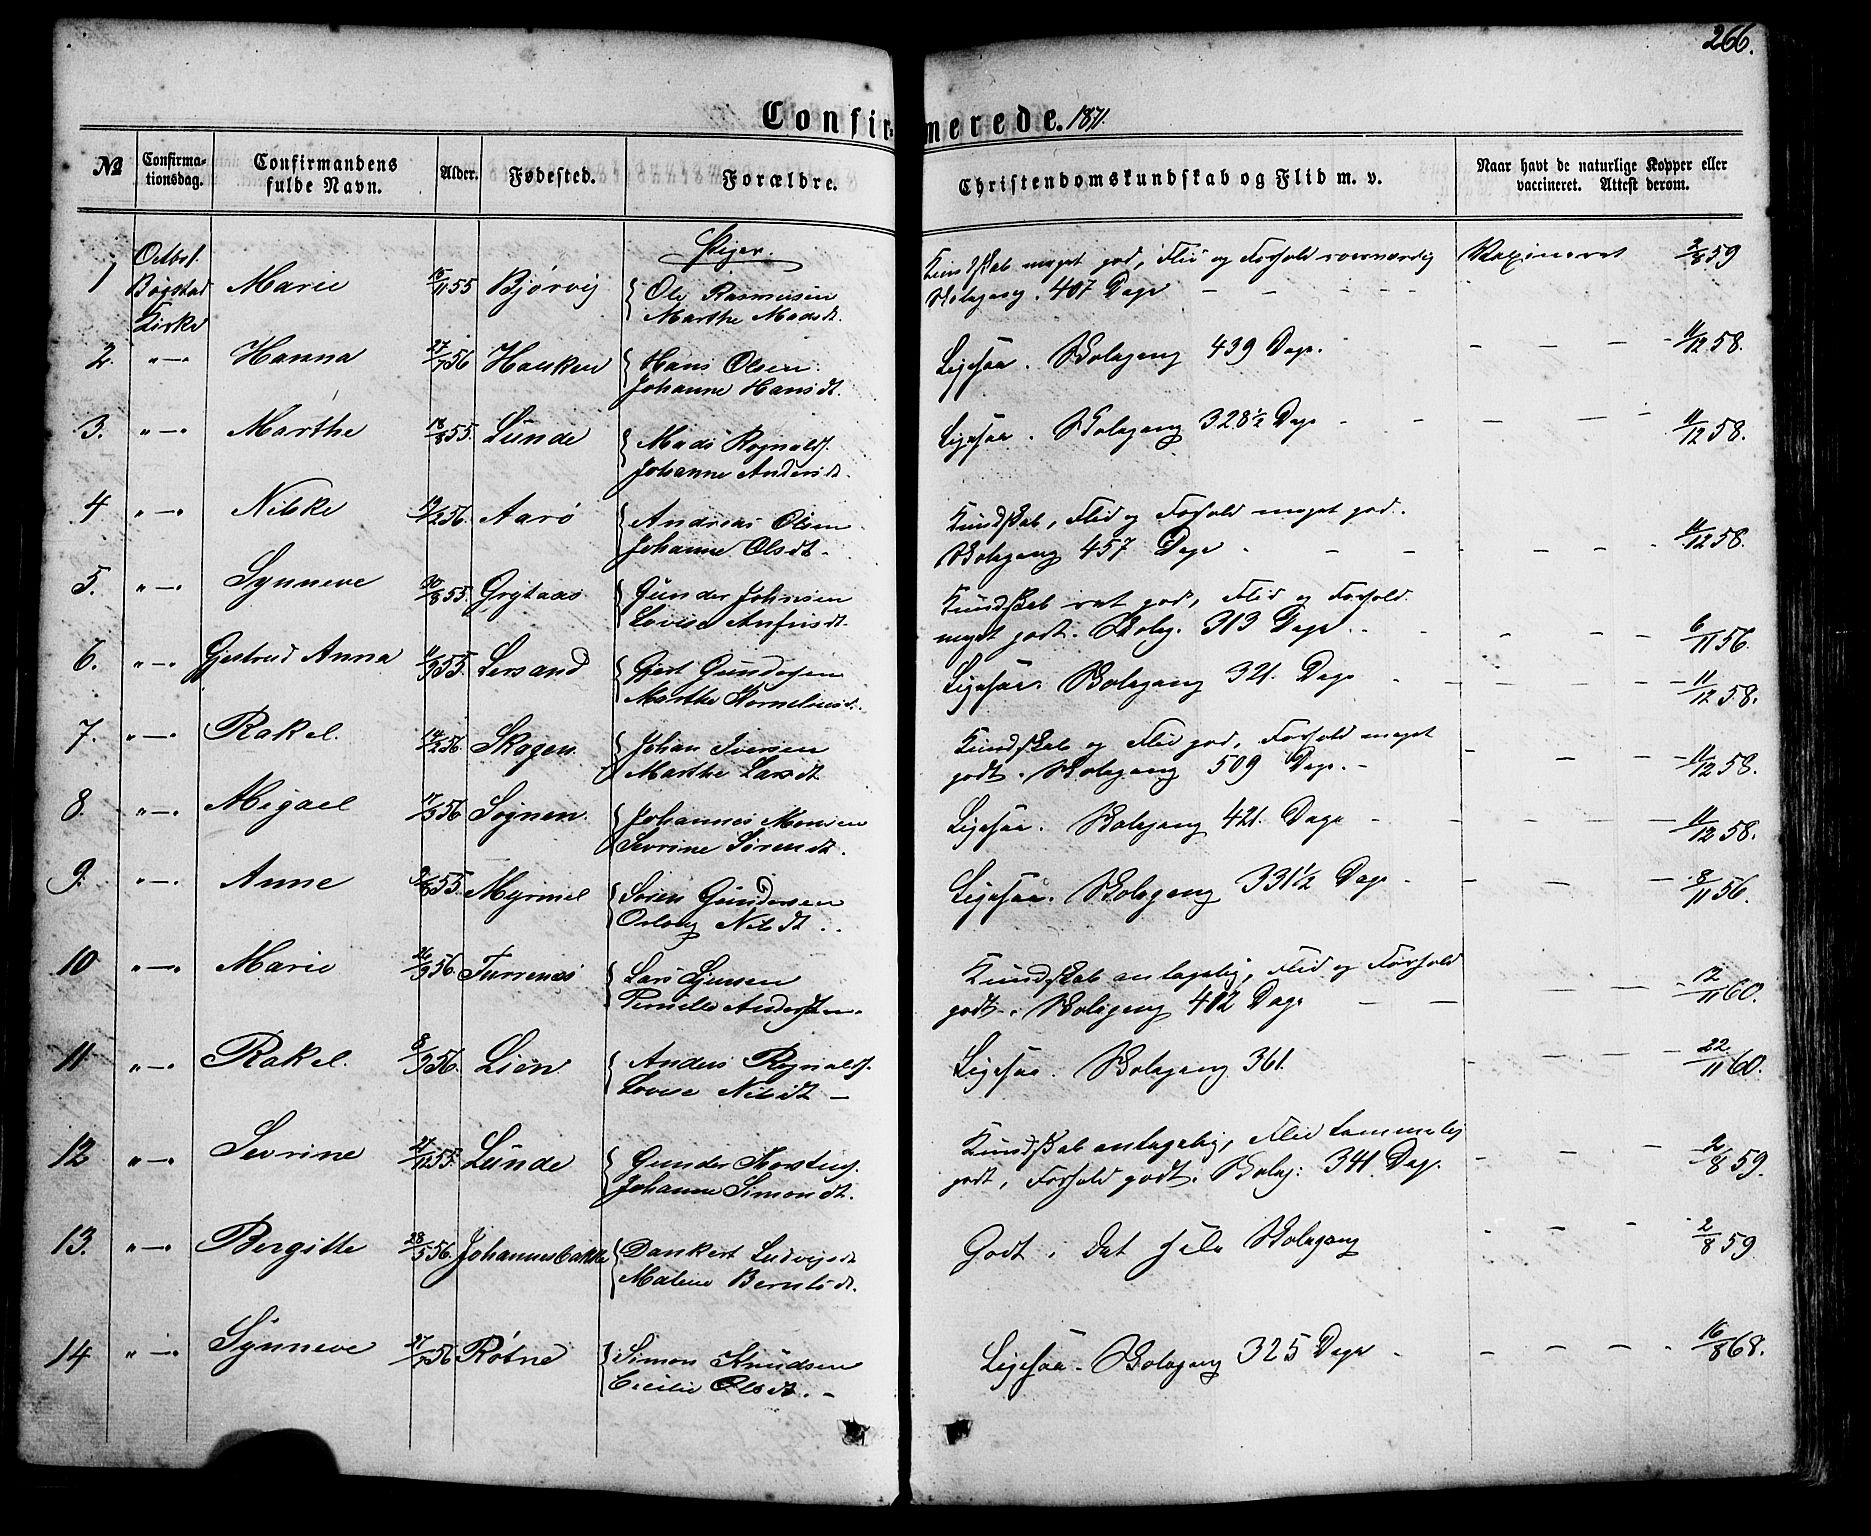 266.
Confirmerede. 1871.
No Confirmationsdag. Confirmandens fulde Navn. Alder. Fødested. Forældre. Christendomskundskab og Flid m. v. Naar havt de naturlige Kopper eller vaccineret. Attest derom.
Piger.
1 Bøgstad Kirke Marie 15/11 55 Bjørvig Ole Rasmusen
Marthe Madsdt. Kundskab meget god, Flid og Forhold roesværdig Vaxineret 2/8 59
Skolegang. 407 Dage — — — —
2. „—„ Hanna 27/7 56 Hauken Hans Olsen
Johanne Hansdt. Ligesaa. Skolegang 439 Dage. — — — 11/12 58.
3. „—„ Marthe 18/8 55. Lunde Mads Rognalds.
Johanne Andersdt. Ligesaa. Skolegang 328½ Dage — — — 11/12 58.
4 „—„ Nilke 19/2 56. Aarø Andreas Olsen
Johanne Olsdt. Kundskab, Flid og Forhold meget god.
Skolegang 457 Dage — — — 11/12 58.
5. „—„ Synneve 30/8 55. Grytaas Gunder Johnsen
Lovise Anfindt. Kundskab ret god, Flid og Forhold
meget godt. Skoleg. 313 Dage — — — 6/11 56.
6. „—„ Gjertrud Anna 11/9 55. Lersand Gjert Gundersen
Marthe Korneliusdt. Ligesaa. Skolegang 321. Dage — — — 11/12 58.
7. „—„ Rakel. 14/2 56. Skagen Johan Iversen
Marthe Larsdt Kundskab og Flid god, Forhold meget
godt. Skolegang 509 Dage. — — — 11/12 58.
8. „—„ Abigael 17/3 56 Sognen Johannes Monsen
Sevrine Sørendt. Ligesaa. Skolegang 421. Dage — — — 11/12 58.
9. „—„ Anne 55. Myrmel Søren Gundersen
Oslaug Nilsdt. Ligesaa. Skolegang 331½ Dage — — — 8/11 56.
10 „—„ Marie 26/3 56 Turrenæs Lars
Pernille Kundskab antagelig, Flid og Forhold
godt. Skolegang 412 Dage — — — 12/11 60.
11 „—„ Rakel. 8/3 56. Lien Anders Rognalds.
Lovise Nilsdt — Ligesaa. Skolegang 361. — — — 22/11 60.
12 „—„ Sevrine 27/12 55. Lunde Gunder
Johanne Simondt. Kundskab antagelig, Flid temmelig
godt, Forhold godt. Skoleg: 341. Dage. — — — 2/8 59.
13. „—„ Bergitte 28/5 56. Johannesbakke Dankert Ludvigs
Malene Berntsdt. Godt. Det hele Skolegang — — — 2/8 59.
14 „—„ Synneve 27/7 56 Røtne Simon Knudsen
Cicilie Olsdt. — Ligesaa. Skolegang 325 Dage — — — 16/8 68.